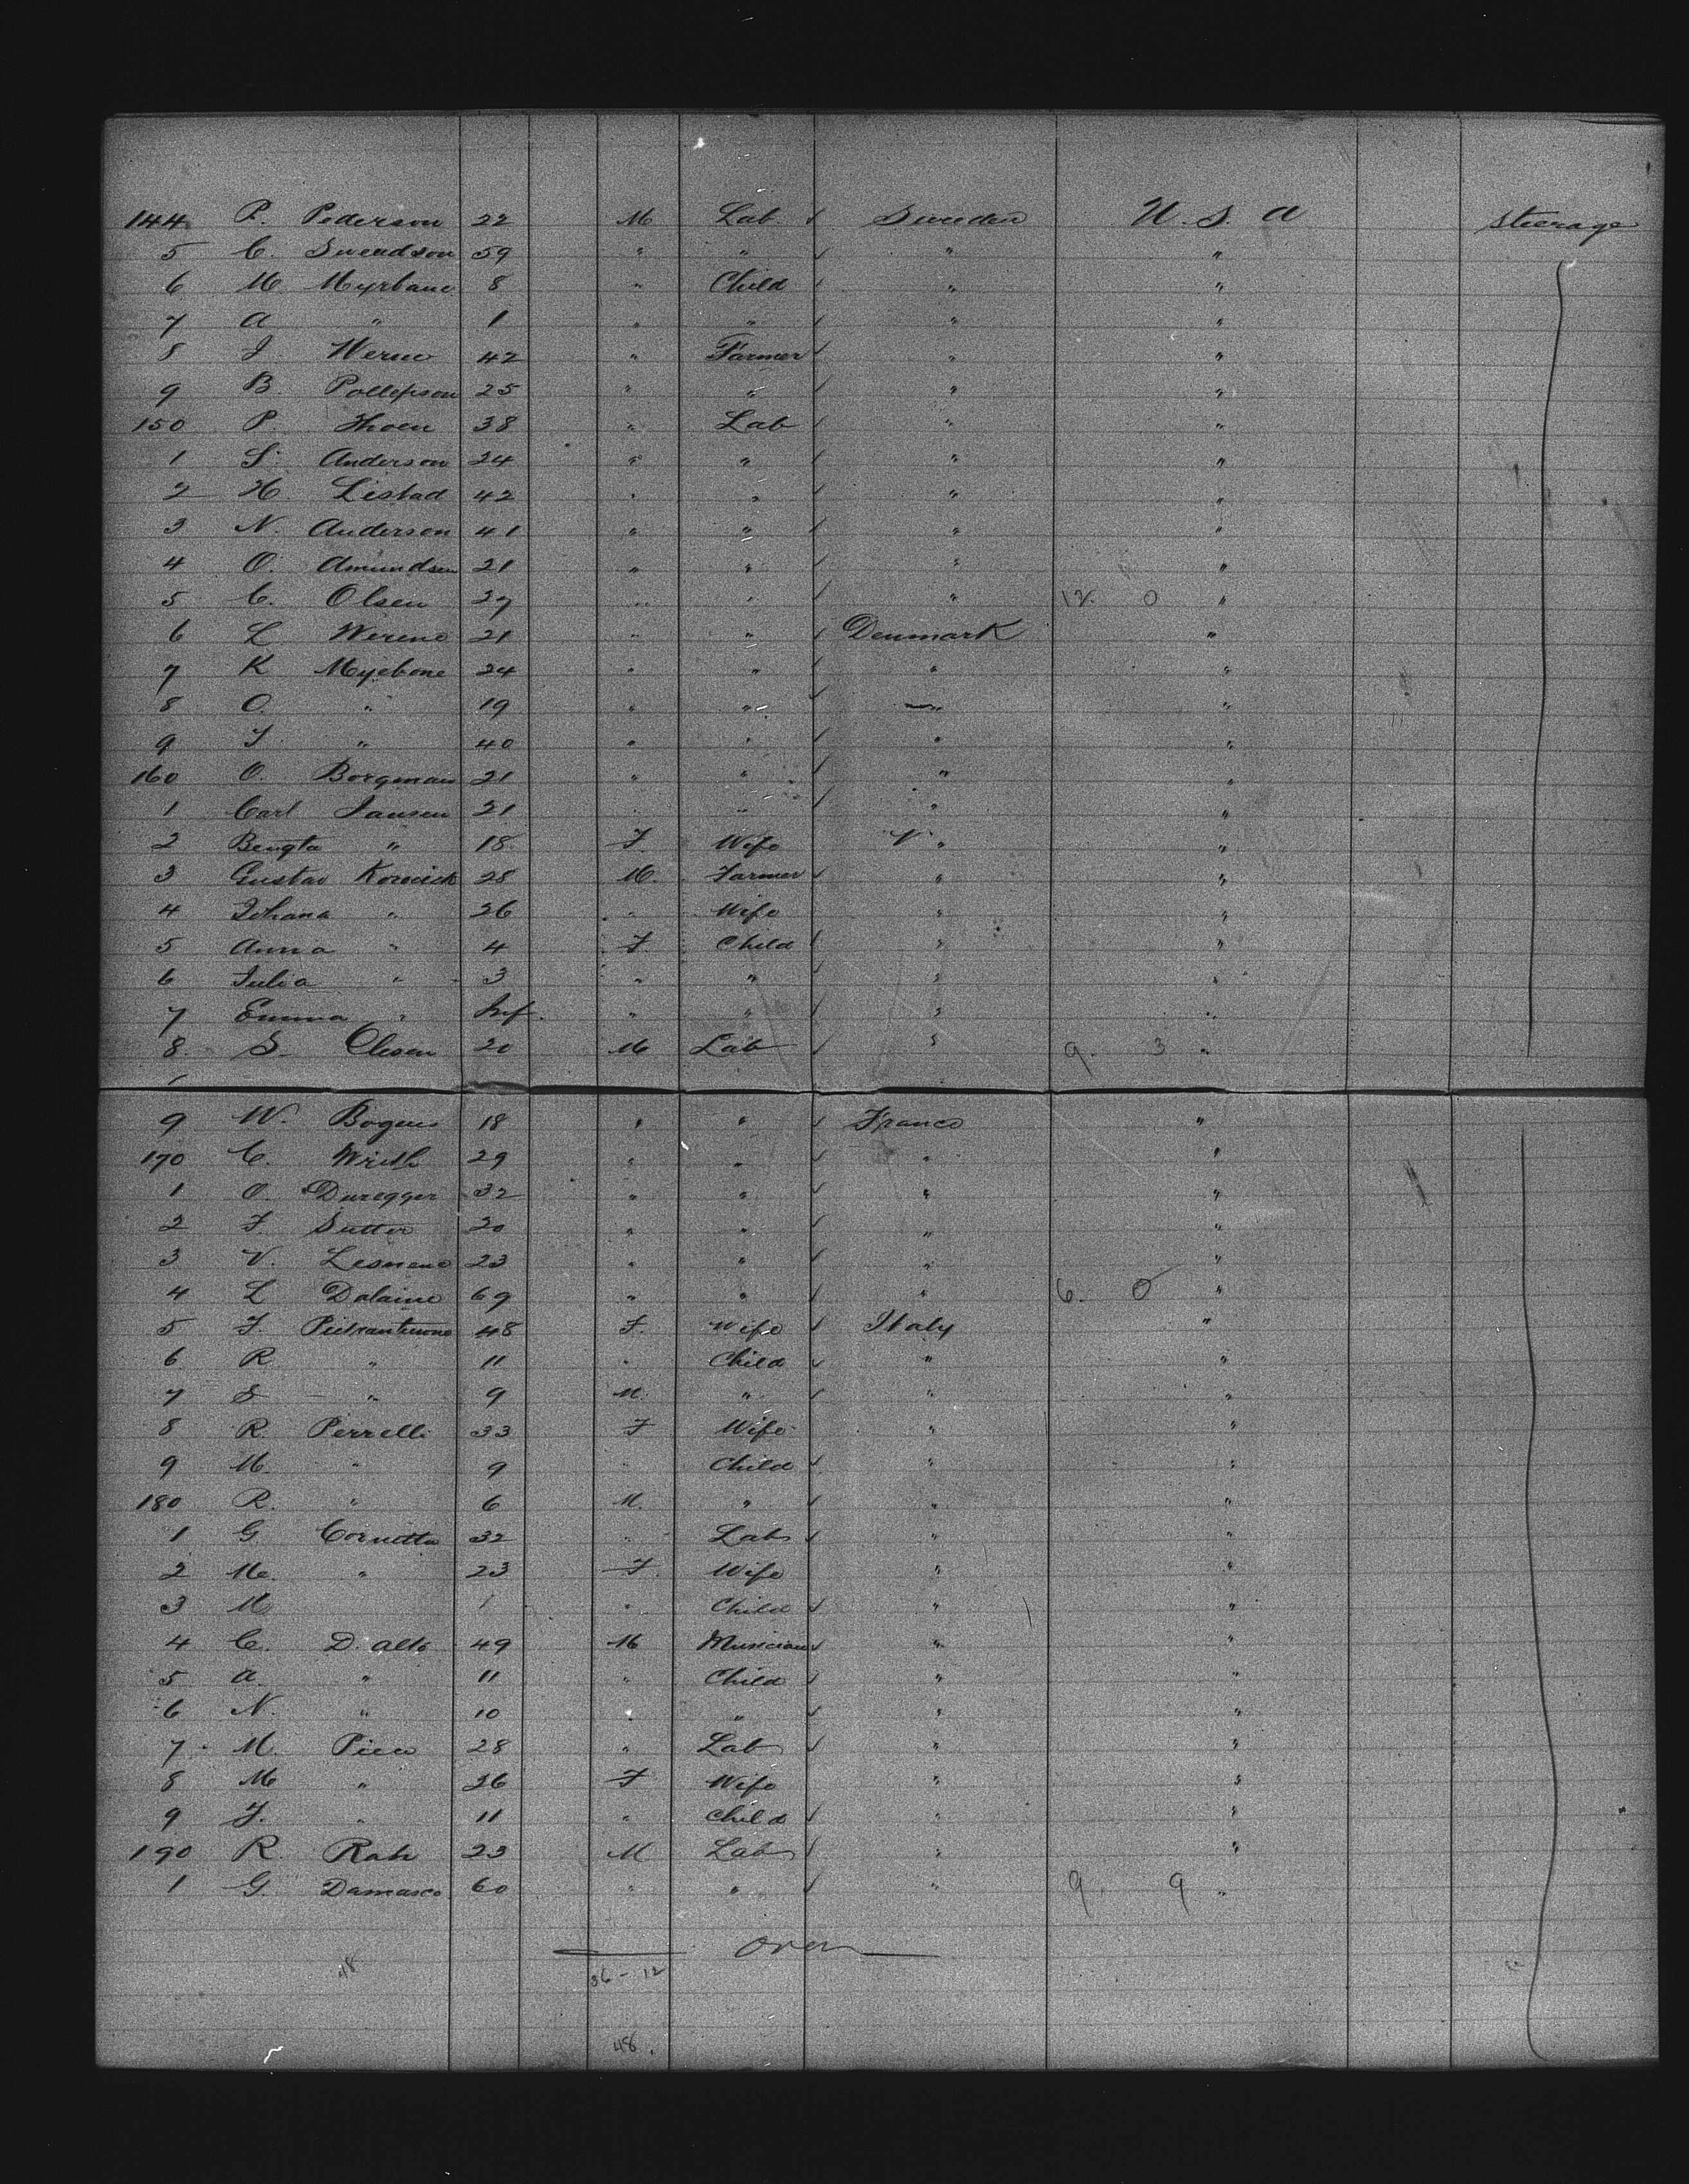 144 P. Pederson 22 M Lab ✓ Sweden U. S. A Steerage
5 C. Swendson 59 " " ✓ " "
6 M Myrbane 8 " Child ✓ " "
7 A " 1 " " ✓ " "
8 J Werne 42 " Farmer ✓ " "
9 B. Pollepson 25 " " ✓ " "
150 P. Thoen 38 " Lab ✓ " "
1 S. Anderson 24 " " ✓ " "
2 H. Listad 42 " " ✓ " "
3 N. Anderson 41 " " ✓ " "
4 O. Amundsen 21 " " ✓ " "
5 C. Olsen 27 " " ✓ " 12. 0 "
6 L Wereno 21 " " ✓ Denmark "
7 K Myebone 24 " " ✓ " "
8 O. " 19 " " ✓ " "
9 T. " 40 " " ✓ " "
160 O. Borgman 21 " " ✓ " "
1 Carl Jansen 21 " " ✓ " "
2 Bengta " 18 F. Wife " "
3 Gustav 28 M. Farmer ✓ " "
4 Johana " 26 " Wife " "
5 Anna " 4 F Child ✓ " "
6 Julia " 3 " " ✓ " "
7 Emma " Inf. " " ✓ " "
8 S. Olesen 20 M Lab ✓ " 9. 3 "
9 W. 18 " " ✓ France "
170 C. 29 " " ✓ " "
1 O. Duregger 32 " " ✓ " "
2 F. Sutter 20 " " ✓ " "
3 V. 23 " " ✓ " "
4 L Dalaine 69 " " ✓ " 6. 0 "
5 F. 48 F. Wife ✓ Italy "
6 R " 11 " Child ✓ " "
7 S " 9 M. " ✓ " "
8 R. Perrelli 33 F Wife " "
9 M. " 9 " Child ✓ " "
180 R. " 6 M. " ✓ " "
1 G Cornetta 32 " Lab ✓ " "
2 Me. " 23 F. Wife " "
3 M 1 " Child ✓ " "
4 C. D. alto 49 M Musician ✓ " "
5 A. " 11 " Child ✓ " "
6 N. " 10 " " ✓ " "
7 M. Pico 28 " Lab ✓ " "
8 M " 26 F Wife " "
9 F. " 11 " Child ✓ " "
190 R. 23 M Lab ✓ " "
1 G. Damasco 60 " " ✓ " 9. 9 "
over
48 36 - 12
48.